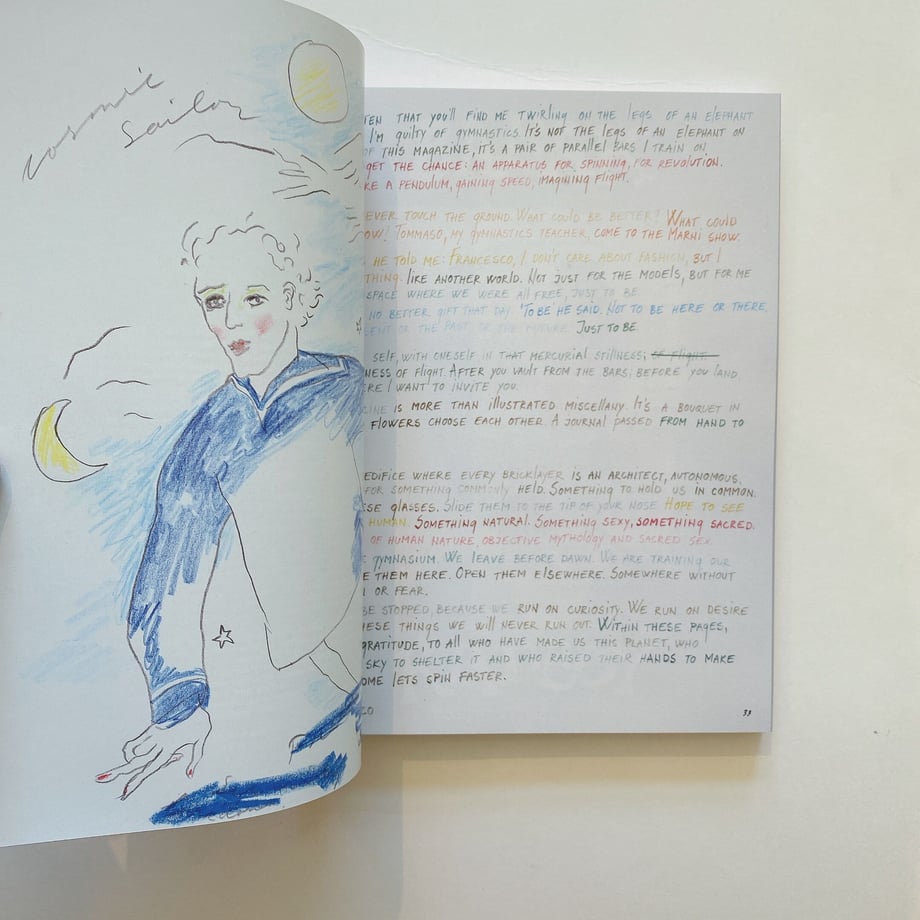 cosmic
sailor
TEN THAT YOU'LL FIND ME TWIRLING ON THE LEGS OF AN ELEPHANT
I'M GUILTY OF GYMNASTICS. IT'S NOT THE LEGS OF AN ELEPHANT ON
OF THIS MAGAZINE, IT'S A PAIR OF PARALLEL BARS I TRAIN ON
GET THE CHANCE: AN APPARATUS FOR SPINNING, FOR REVOLUTION.
KE A PENDULUM, GAINING SPEED, IMAGINING FLIGHT.
EVER TOUCH THE GROUND. WHAT COULD BE BETTER? WHAT COULD
OW! TOMMASO, MY GYMNASTICS TEACHER, COME TO THE MARNI SHOW.
HE TOLD ME: FRANCESCO, I DON'T CARE ABOUT FASHION, BUT I
THING. LIKE ANOTHER WORLD. NOT JUST FOR THE MODELS, BUT FOR ME
SPACE WHERE WE WERE All FREE, JUST TO BE
NO BETTER GIFT THAT DAY. 'TO BE' HE SAID. NOT TO BE HERE OR THERE,
SENT OR THE PAST OR THE FUTURE. JUST TO BE.
SELF, WITH ONESELF, IN THAT MERCURIAL STILLNESS; OF FLIGHT
NESS OF FLIGHT. AFTER YOU VAULT FROM THE BARS; BEFORE YOU LAND.
RE I WANT TO INVITE YOU.
INE IS MORE THAN ILLUSTRATED MISCELLANY. IT'S A BOUQUET IN
FLOWERS CHOOSE EACH OTHER. A JOURNAL PASSED FROM HAND TO
EDIFICE WHERE EVERY BRICKLAYER IS AN ARCHITECT, AUTONOMOUS,
FOR SOMETHING COMMONLY HELD. SOMETHING TO HOLD US IN COMMON.
SE GLASSES. SLIDE THEM TO THE TIP OF YOUR NOSE HOPE TO SEE
HUMAN. SOMETHING NATURAL. SOMETHING SEXY, SOMETHING SACRED.
OF HUMAN NATURE, OBJECTIVE MYTHOLOGY AND SACRED SEX.
GYMNASIUM. WE LEAVE BEFORE DAWN. WE ARE TRAINING OUR
E THEM HERE. OPEN THEM ELSEWHERE. SOMEWHERE WITHOUT
OR FEAR.
BE STOPPED, BECAUSE WE RUN ON CURIOSITY. WE RUN ON DESIRE
HESE THINGS WE WILL NEVER RUN OUT. WITHIN THESE PAGES,
GRATITUDE, TO All WHO HAVE MADE US THIS PLANET, WHO
SKY TO SHELTER IT AND WHO RAISED THEIR HANDS TO MAKE
OME LETS SPIN FASTER.
CO
33